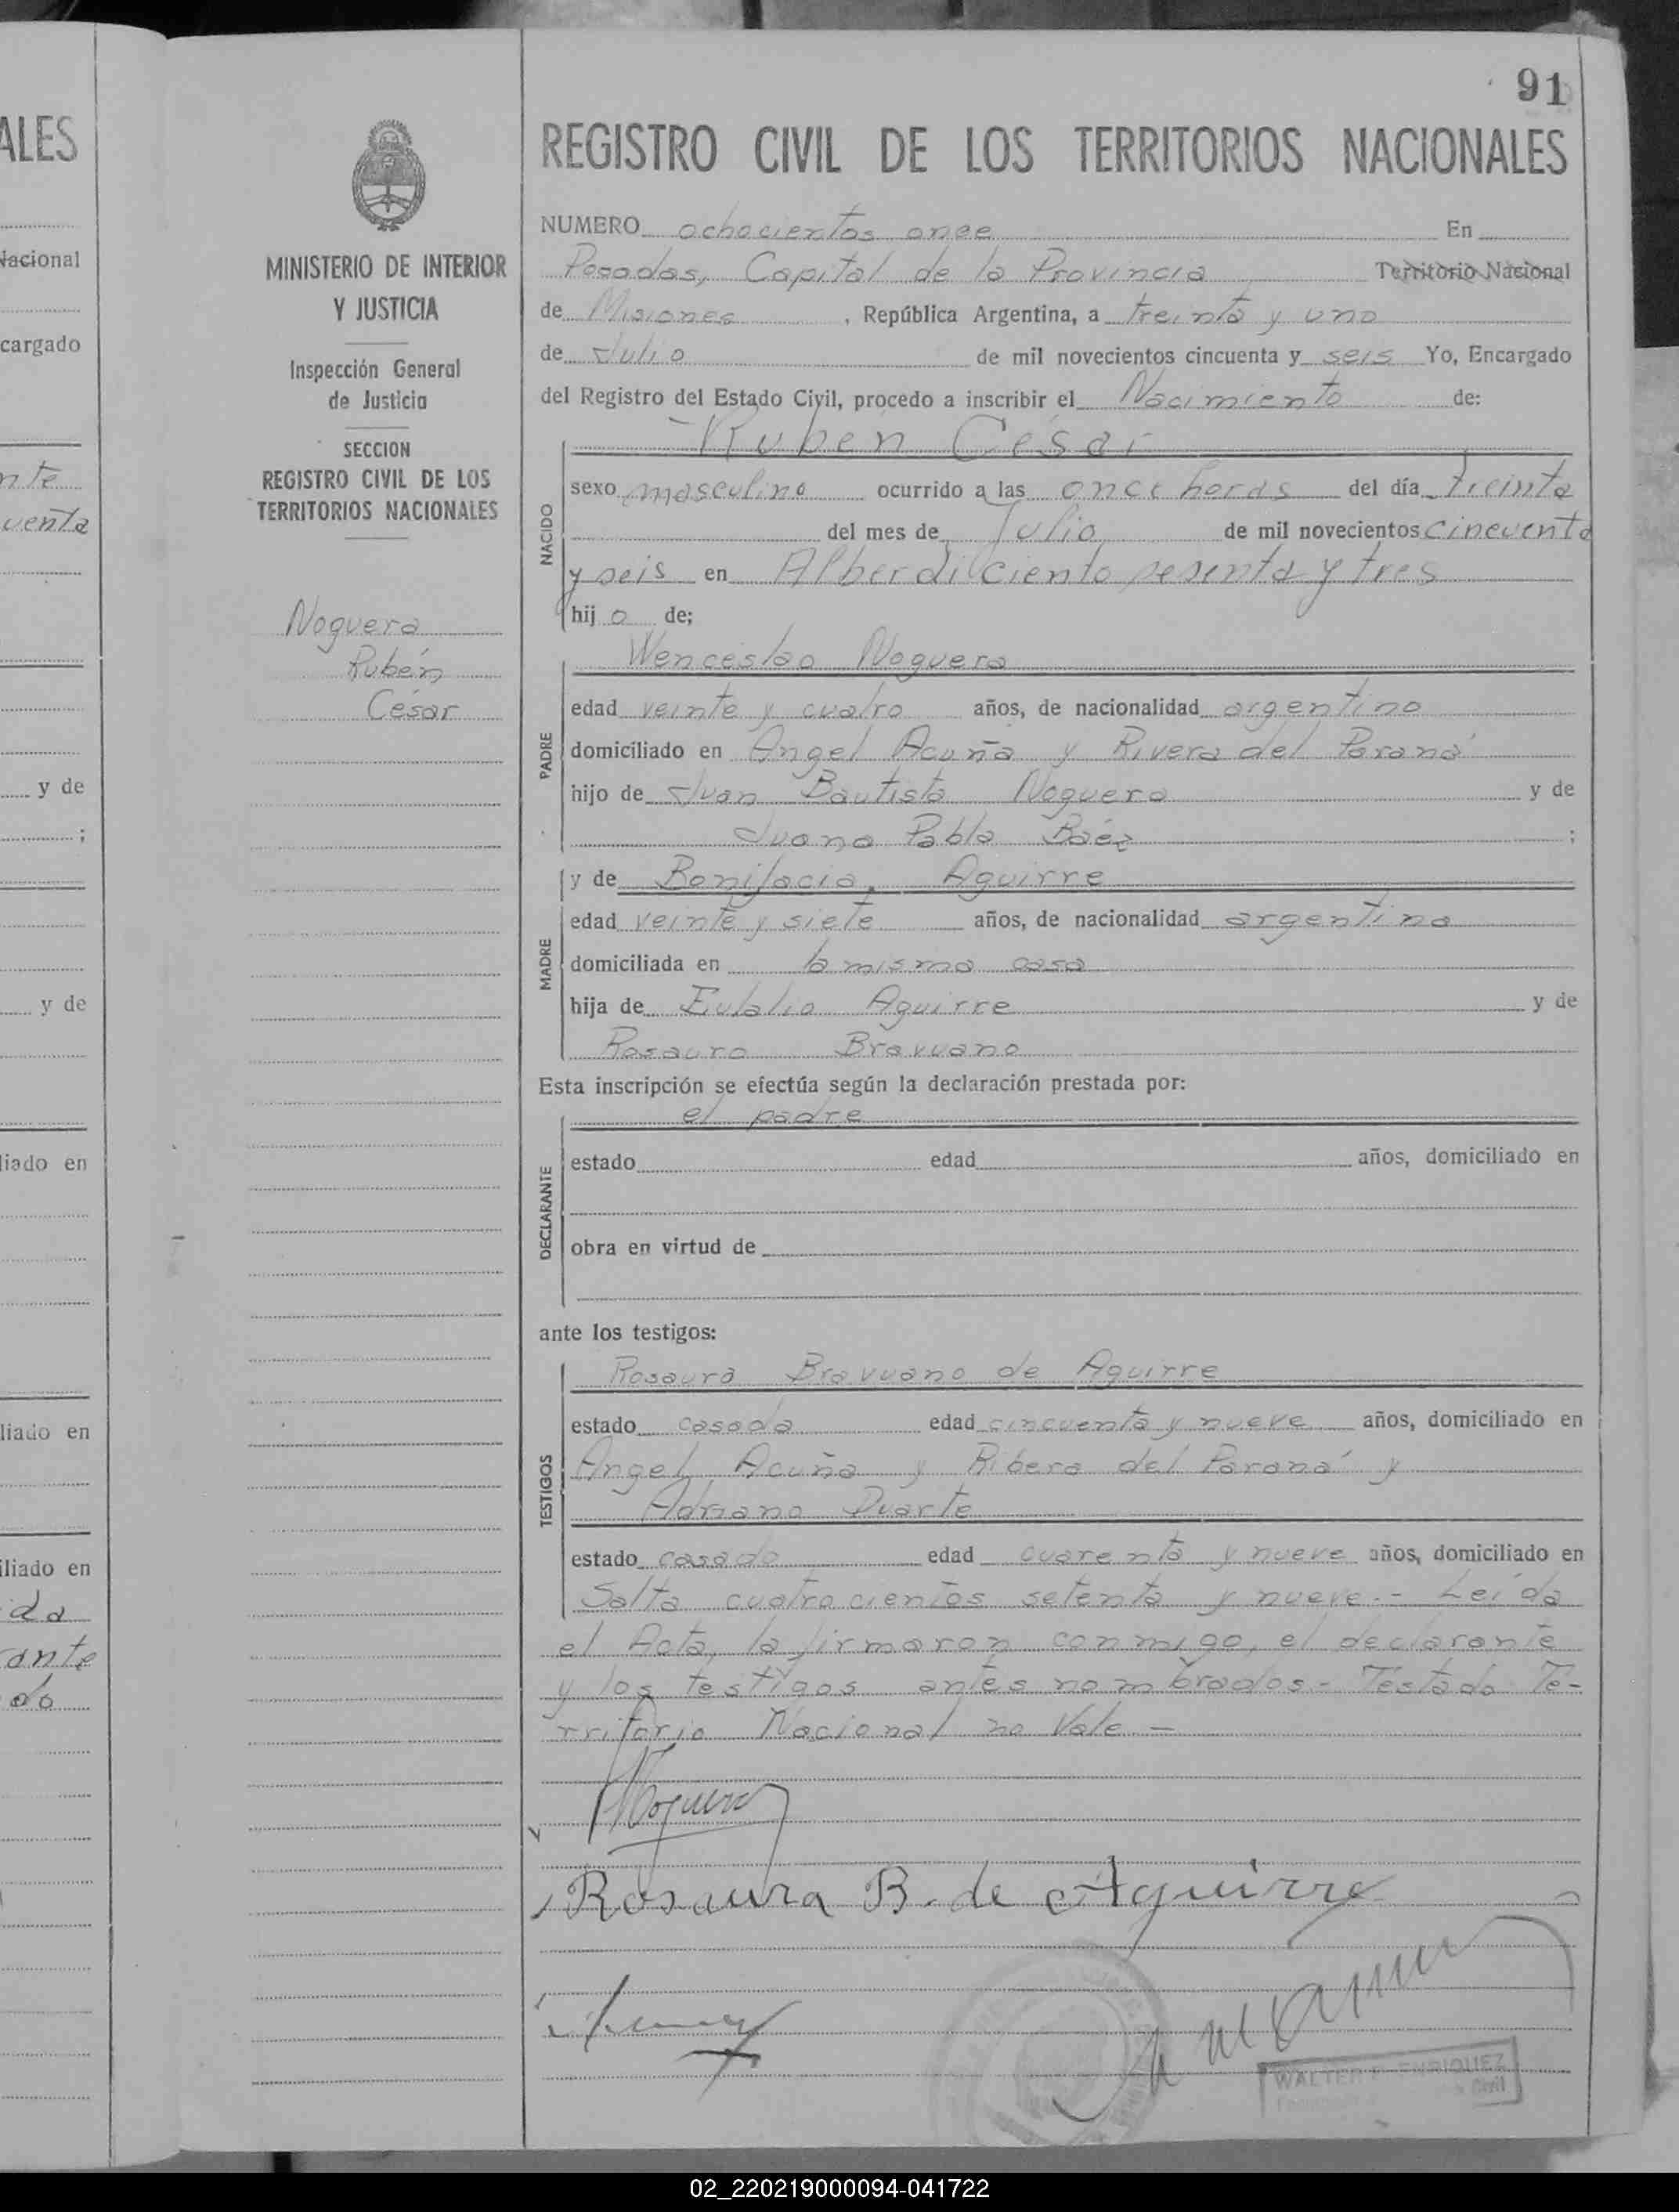 91
REGISTRO CIVIL DE LOS TERRITORIOS NACIONALES
NUMERO ochocientos once En
Posadas, Capital de la Provincia Territorio Nacional
de Misiones, República Argentina, a treinta y uno
de Julio de mil novecientos cincuenta y seis Yo, Encargado
del Registro del Estado Civil, procedo a inscribir el Nacimiento de:
Rubén César
NACIDO
sexo masculino ocurrido a las once horas del día treinta
del mes de Julio de mil novecientos cincuenta
y seis en Alberdi ciento sesenta y tres
hijo de;
PADRE
Wenceslao Noguera
edad veinte y cuatro años, de nacionalidad argentino
domiciliado en Angel Acuña y Rivera del Paraná
hijo de Juan Bautista Noguera y de
Juana Pabla Báez ;
MADRE
y de Bonifacia Aguirre
edad veinte y siete años, de nacionalidad argentina
domiciliada en la misma casa
hija de Eulalio Aguirre y de
Rosaura Bravuano
Esta inscripción se efectúa según la declaración prestada por:
DECLARANTE
el padre
estado edad años, domiciliado en
obra en virtud de
ante los testigos:
TESTIGOS
Rosaura Bravuano de Aguirre
estado casada edad cincuenta y nueve años, domiciliado en
Angel Acuña y Ribera del Paraná y
Adriano Duarte
estado casado edad cuarenta y nueve años, domiciliado en
Salta cuatrocientos setenta y nueve.- Leída
el Acta, la firmaron conmigo, el declarante
y los testigos antes nombrados - Testado Te-
rritorio Nacional no Vale -
Noguera
Rosaura B. de Aguirre
WALTER ENRIQUEZ
MINISTERIO DE INTERIOR
Y JUSTICIA
Inspección General
de Justicia
SECCION
REGISTRO CIVIL DE LOS
TERRITORIOS NACIONALES
Noguera
Rubén
César
ALES
Nacional
cargado
nte
uenta
y de
;
y de
liado en
liado en
iliado en
da
ante
do
02_220219000094-041722